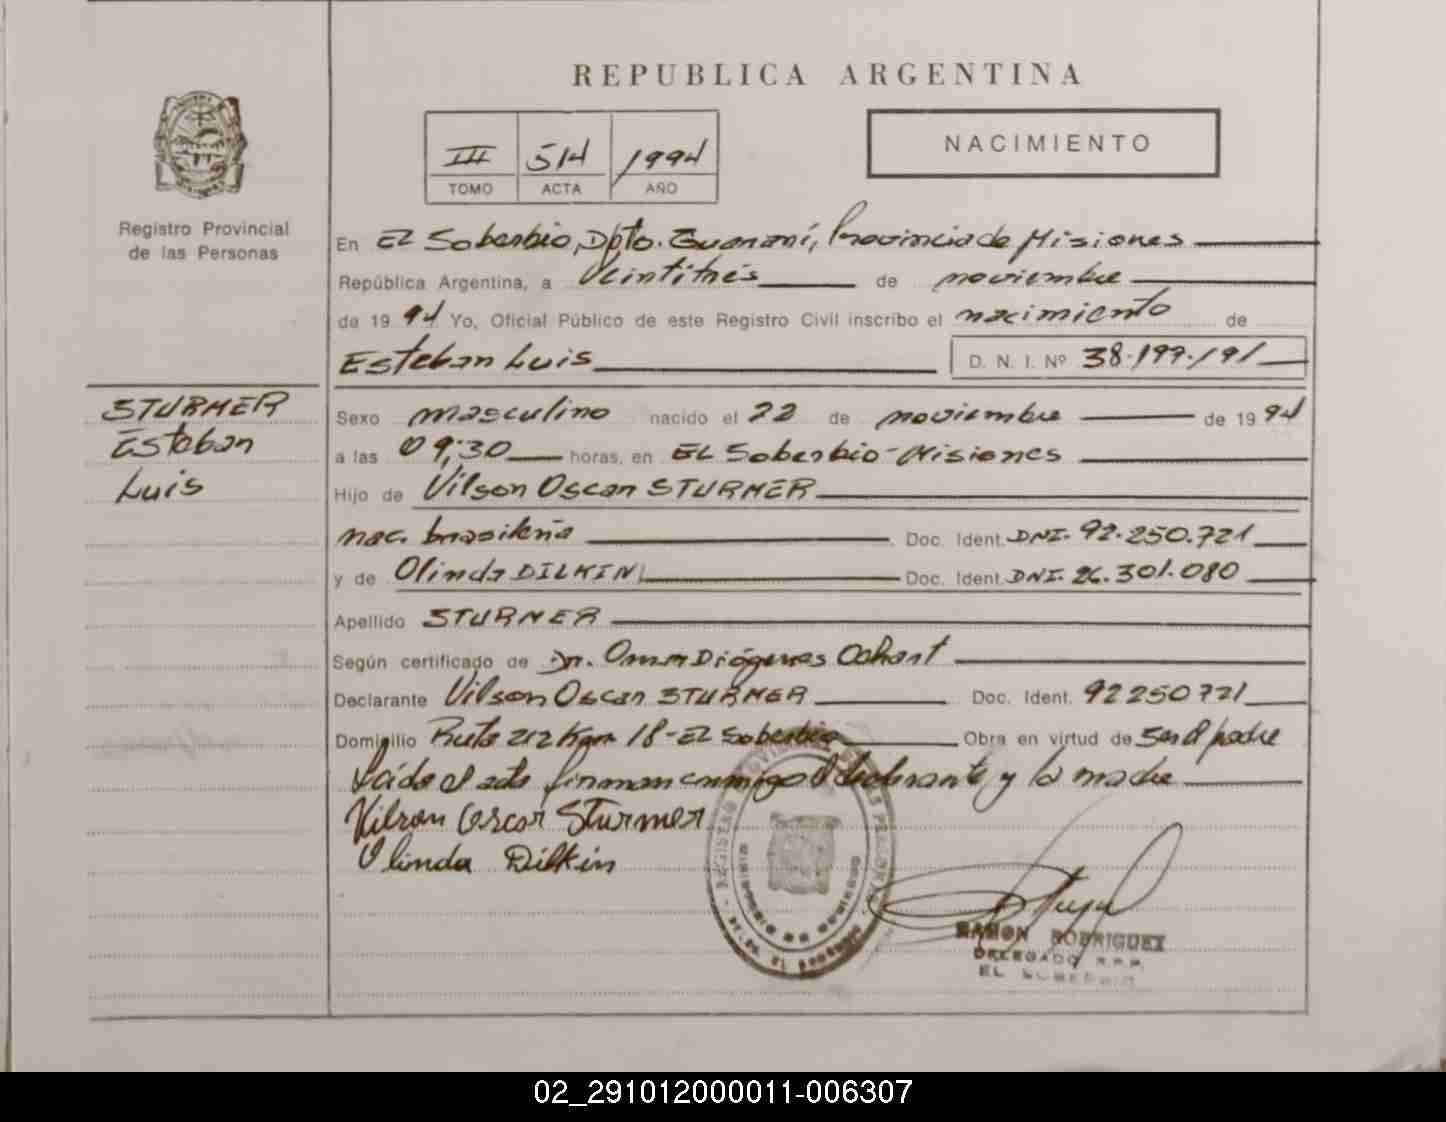 REPUBLICA ARGENTINA
III 514 1994
TOMO ACTA AÑO
NACIMIENTO
Registro Provincial
de las Personas
En El Soberbio, Dpto. Guaraní, Provincia de Misiones
República Argentina, a Veintitrés de noviembre
de 1994 Yo, Oficial Público de este Registro Civil inscribo el nacimiento de
Esteban Luis D. N. I. Nº 38.199.191
STURMER
Esteban
Luis
Sexo masculino nacido el 22 de noviembre de 1994
a las 09,30 horas, en El Soberbio-Misiones
Hijo de Vilson Oscar STURMER
nac. brasileña Doc. Ident. DNI. 92.250.721
y de Olinda DILKIN Doc. Ident. DNI. 26.301.080
Apellido STURMER
Según certificado de Dr. Omar Diógenes
Declarante Vilson Oscar STURMER Doc. Ident. 92250721
Domicilio Ruta 212 Km 18-El Soberbio Obra en virtud de ser el padre
Leído el acta firman conmigo el declarante y la madre
Vilson Oscar Sturmer
Olinda Dilkin
RAMON RODRIGUEZ
DELEGADO R.P.P.
EL SOBERBIO
02_291012000011-006307